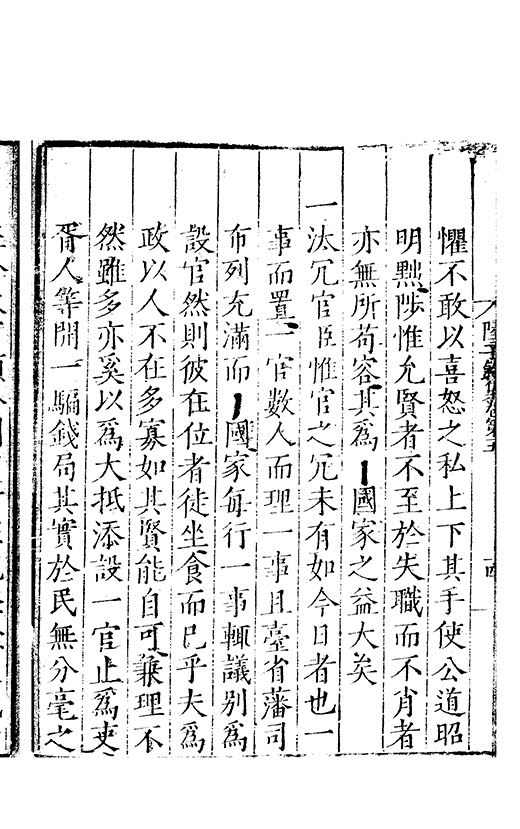 懼不敢以喜怒之私上下其手使公道昭
明黜陟惟允賢者不至於失職而不肖者
亦無所苟容其爲國家之益大矣
一汰冗官臣惟官之冗未有如今日者也一
事而置一官數人而理一事且臺省藩司
布列充滿而國家每行一事輒議別爲
設官然則彼在位者徒坐食而已乎夫爲
政以人不在多寡如其賢能自可兼理不
然雖多亦奚以爲大抵添設一官止爲吏
胥人等開一騙錢局其實於民無分毫之